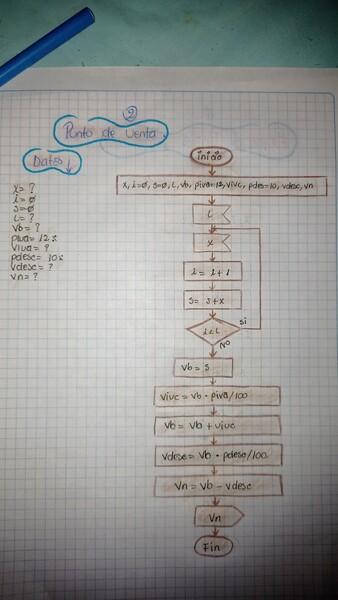 ②
Punto de Venta
Datos ↓
x = ?
i = ø
s = ø
L = ?
Vb = ?
piva = 12%
viva = ?
pdesc = 10%
vdesc = ?
vn = ?
inicio
x, i=ø, s=ø, L, Vb, piva=12, vivc, pdes=10, vdesc, vn
L
x
i = i + 1
s = s + x
i < L
si
No
Vb = s
vivc = Vb • piva/100
Vb = Vb + vivc
vdesc = Vb • pdesc/100
Vn = Vb - vdesc
Vn
Fin